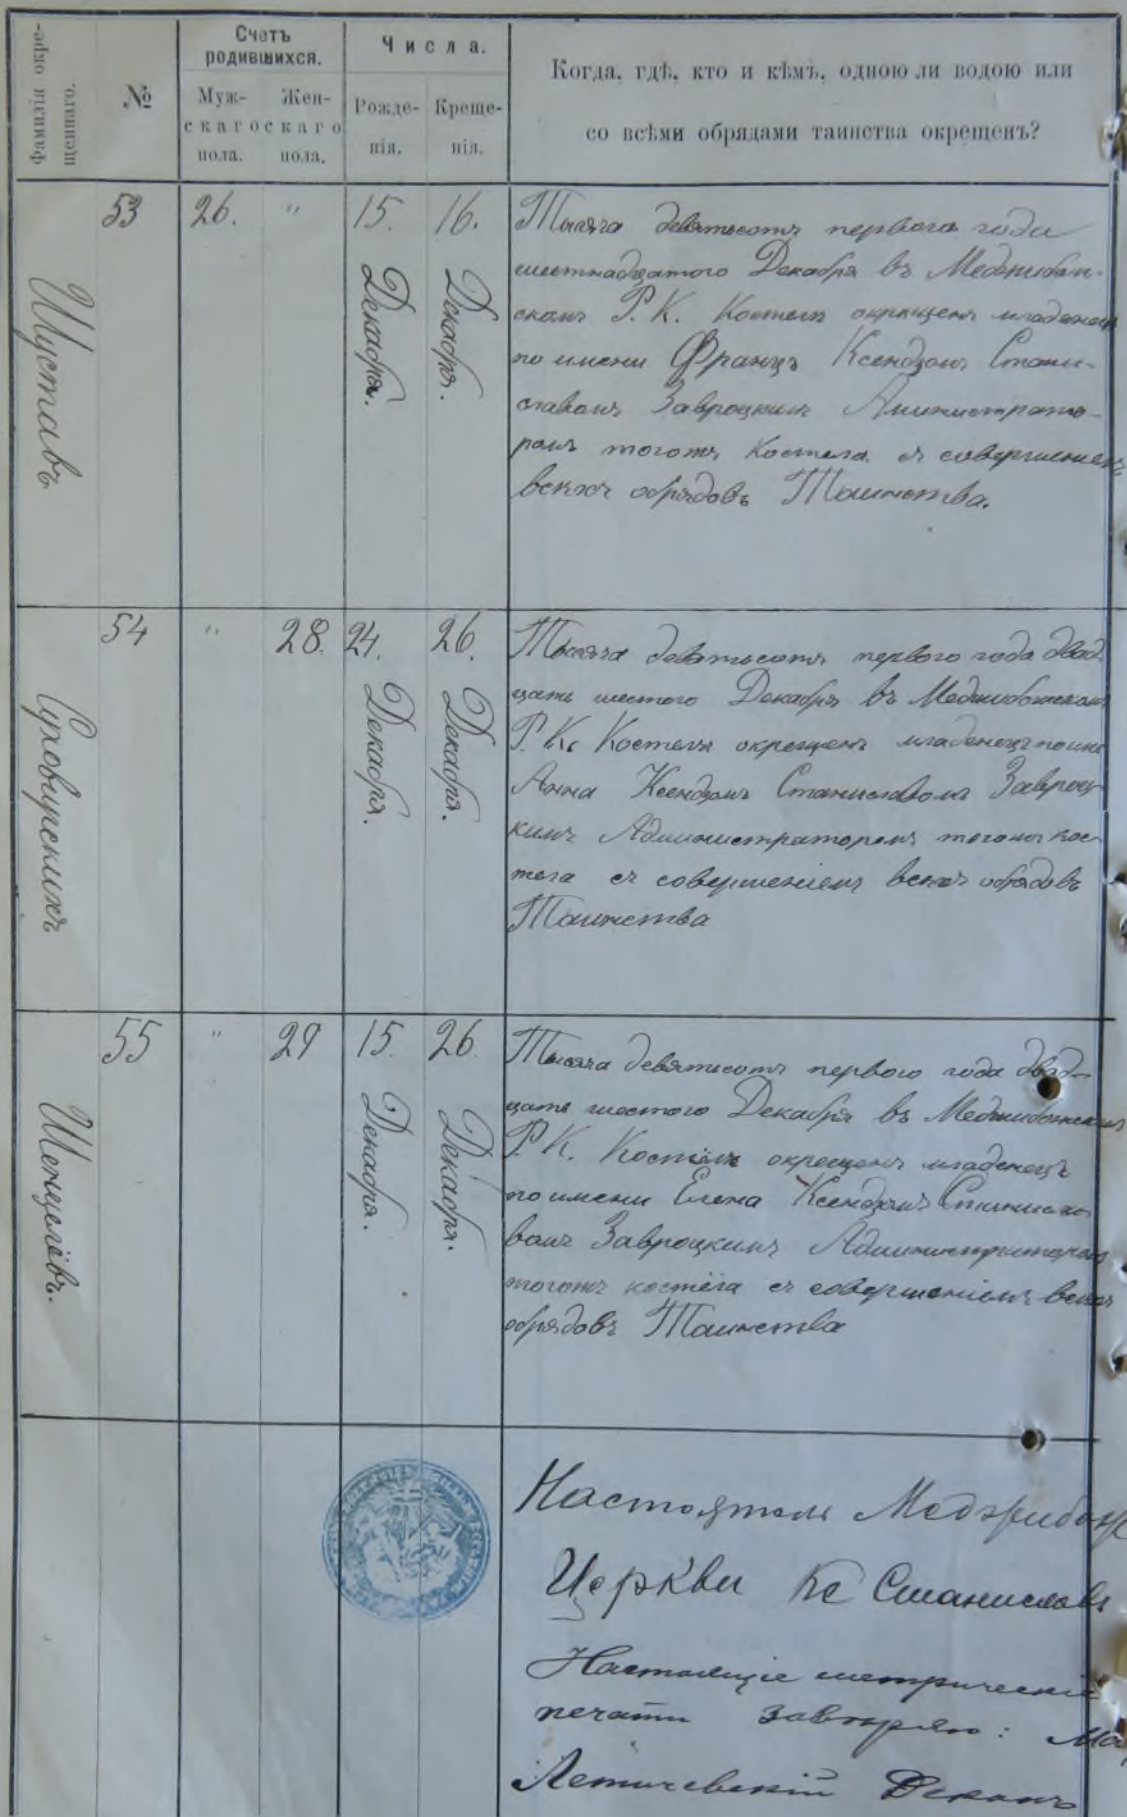 Фамилія окре-
щеннаго.
№
Счетъ
родившихся.
Муж-
скаго
пола.
Жен-
скаго
пола.
Числа.
Рожде-
нія.
Креще-
нія.
Когда, гдѣ, кто и кѣмъ, одною ли водою или
со всѣми обрядами таинства окрещенъ?
Шуставъ
53
26.
"
15.
Декабря.
16.
Декабря.
Тысяча девятьсотъ первого года
шестнадцатого Декабря въ Меджибож-
скомъ Р. К. Костелѣ окрещенъ младенецъ
по имени Францъ Ксендзомъ Стани-
славомъ Завроцкимъ Администрато-
ромъ тогожъ Костела съ совершеніемъ
всѣхъ обрядовъ Таинства.
54
"
28.
24.
Декабря.
26.
Декабря.
Тысяча девятьсотъ первого года двад-
цать шестого Декабря въ Меджибожскомъ
Р. К. Костелѣ окрещенъ младенецъ по име
Анна Ксендзомъ Станиславомъ Завроц-
кимъ Администраторомъ тогожъ кос-
тела съ совершеніемъ всѣхъ обрядовъ
Таинства
Шенцелёвъ.
55
"
29
15.
Декабря.
26.
Декабря.
Тысяча девятисотъ первого года двад-
цать шестого Декабря въ Меджибожскомъ
Р. К. Костёлѣ окрещенъ младенецъ
по имени Елена Ксендзомъ Станисла-
вомъ Завроцкимъ Администраторомъ
тогожъ костёла съ совершеніемъ всѣхъ
обрядовъ Таинства
Настоятель Меджибож
Церкви Кс Станиславъ
Настоящіе метрическіе
печати завѣряю:
Летичевскій Деканъ